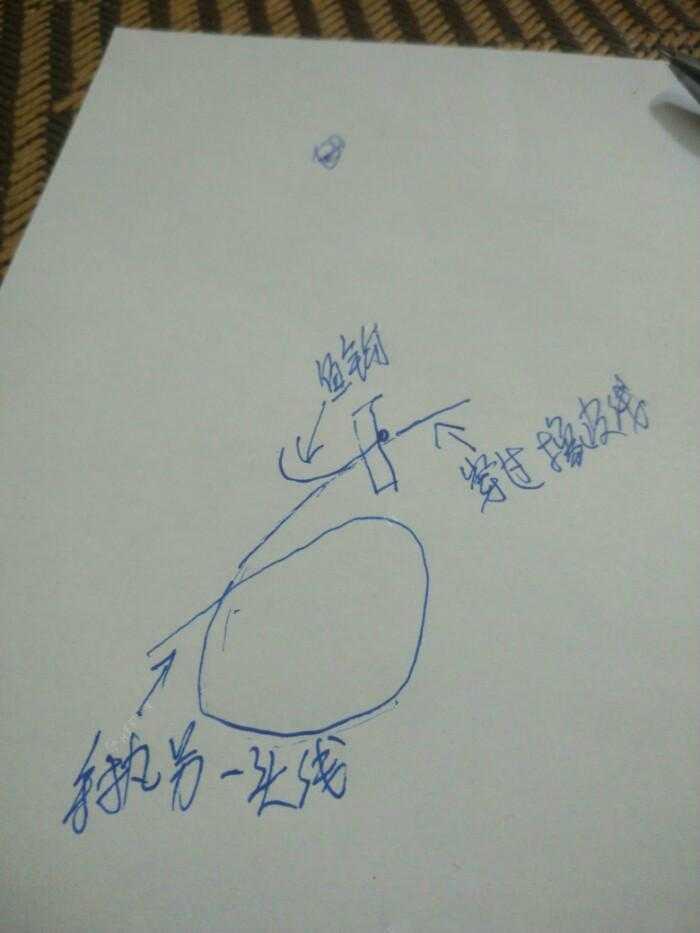 鱼钩
穿过橡皮线
手执另一头线